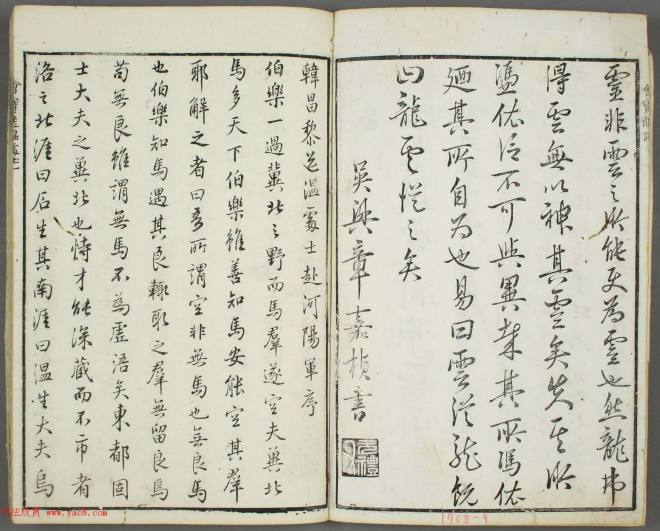 靈非雲之所能使為靈也然龍弗
得雲無以神其靈矣失其所
憑依信不可與異哉其所馮依
廼其所自為也易曰雲從龍既
曰龍雲從之矣
吳興章嘉楨書
韓昌黎送溫處士赴河陽軍序
伯樂一過冀北之野而馬羣遂空夫冀北
馬多天下伯樂雖善知馬安能空其羣
耶解之者曰吾所謂空非無馬也無良馬
也伯樂知馬遇其良輒取之羣無留良焉
苟無良雖謂無馬不為虛語矣東都固
士大夫之冀北也恃才能深藏而不市者
洛之北涯曰石生其南涯曰溫生大夫烏
1708-9
www.yac8.com